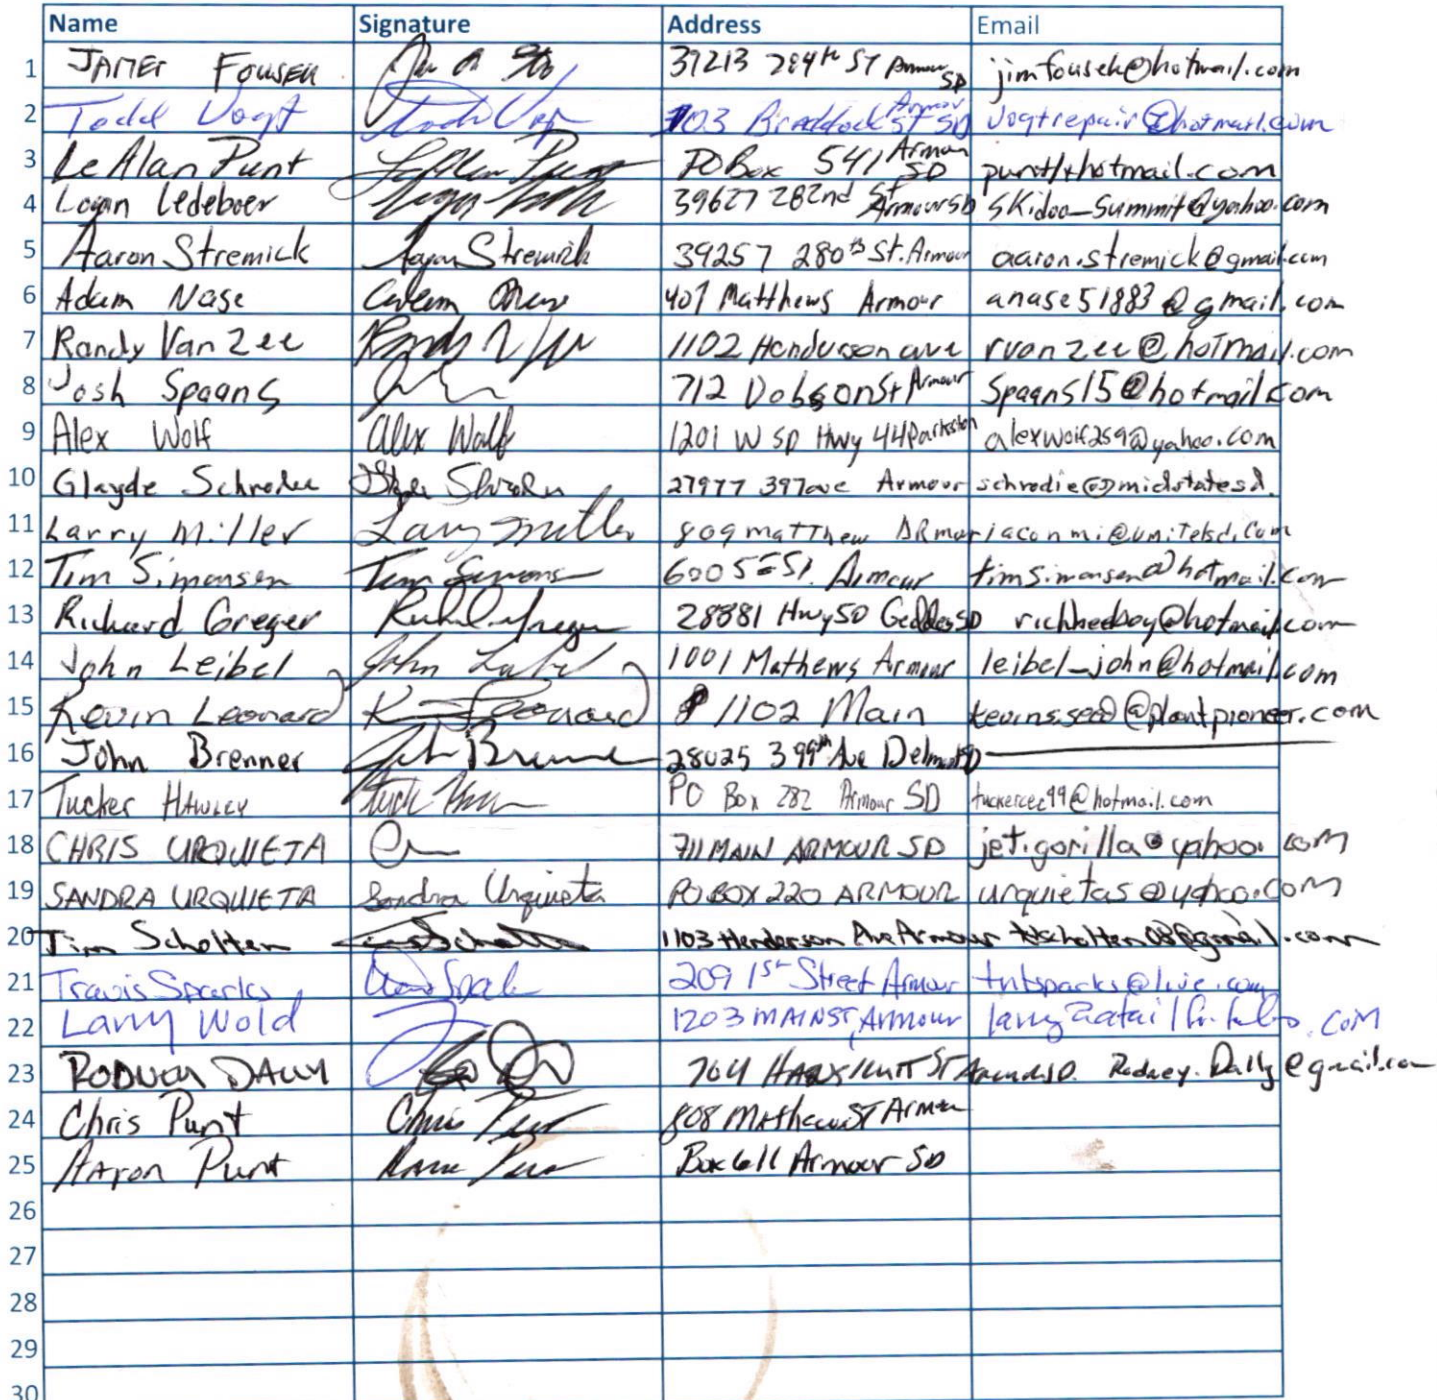 Name Signature Address Email
1 JAMES FOUSEK 39213 284th ST Armour SD jimfousek@hotmail.com
2 Todd Vogt Todd Vogt 703 Braddock ST Armour SD vogtrepair@hotmail.com
3 LeAlan Punt LeAlan Punt PO Box 541 Armour SD
4 Logan Ledeboer 39627 282nd St Armour SD skidoo_summit@yahoo.com
5 Aaron Stremick Aaron Stremick 39257 280th St. Armour aaron.stremick@gmail.com
6 Adam Nase 407 Matthews Armour anase51883@gmail.com
7 Randy Van Zee 1102 Henderson ave rvanzee@hotmail.com
8 Josh Spaans 712 Dobson St Armour Spaans15@hotmail.com
9 Alex Wolf Alex Wolf 1201 W SD Hwy 44 Parkston alexwolf259@yahoo.com
10 Glayde Schroder 27977 397 ave Armour schrodie@midstatesd.
11 Larry Miller Larry Miller 809 matthew ARmor laconmi@unitelsd.com
12 Tim Simonsen Tim Simons 600 5 St. Armour timsimonsen@hotmail.com
13 Richard Greger 28881 Hwy 50 Geddes SD richheeboy@hotmail.com
14 John Leibel John Leibel 1001 Mathews Armour leibel_john@hotmail.com
15 Kevin Leonard K Leonard 1102 Main kevins.seed@plantpioneer.com
16 John Brenner John Brenner 28025 399th Ave Delmont SD
17 Tucker HAWLEY PO Box 282 Armour SD tuckercec99@hotmail.com
18 CHRIS URQUIETA 711 MAIN ARMOUR SD jet.gorilla@yahoo.com
19 SANDRA URQUIETA Sandra Urquieta PO BOX 220 ARMOUR urquietas@yahoo.com
20 Tim Scholten 1103 Henderson Ave Armour totscholten08@gmail.com
21 Travis Sparks 209 1st Street Armour tntsparks@live.com
22 Larry Wold 1203 MAIN ST, Armour
23 RODNEY DALLY 704 ST Armour SD. Rodney.Dally@gmail.com
24 Chris Punt Chris Punt 808 Mathews ST Armour
25 Aaron Punt Box 611 Armour SD
26
27
28
29
30